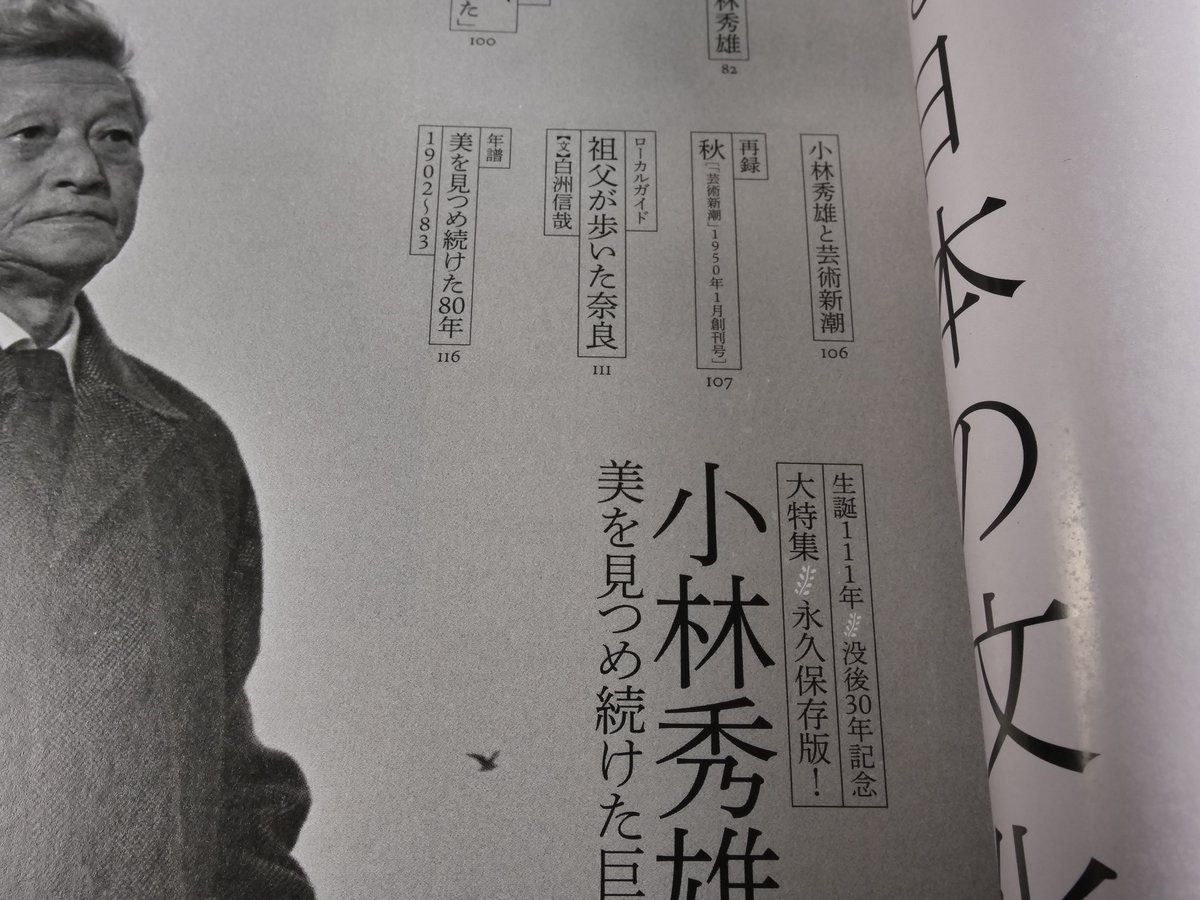 日本の文
林秀雄
82
た」
100
小林秀雄と芸術新潮
106
再録
秋［「芸術新潮」1950年1月創刊号］
107
ローカルガイド
祖父が歩いた奈良
【文】白洲信哉
111
年譜
美を見つめ続けた80年
1902〜83
116
生誕111年 没後30年記念
大特集 永久保存版！
小林秀雄
美を見つめ続けた巨